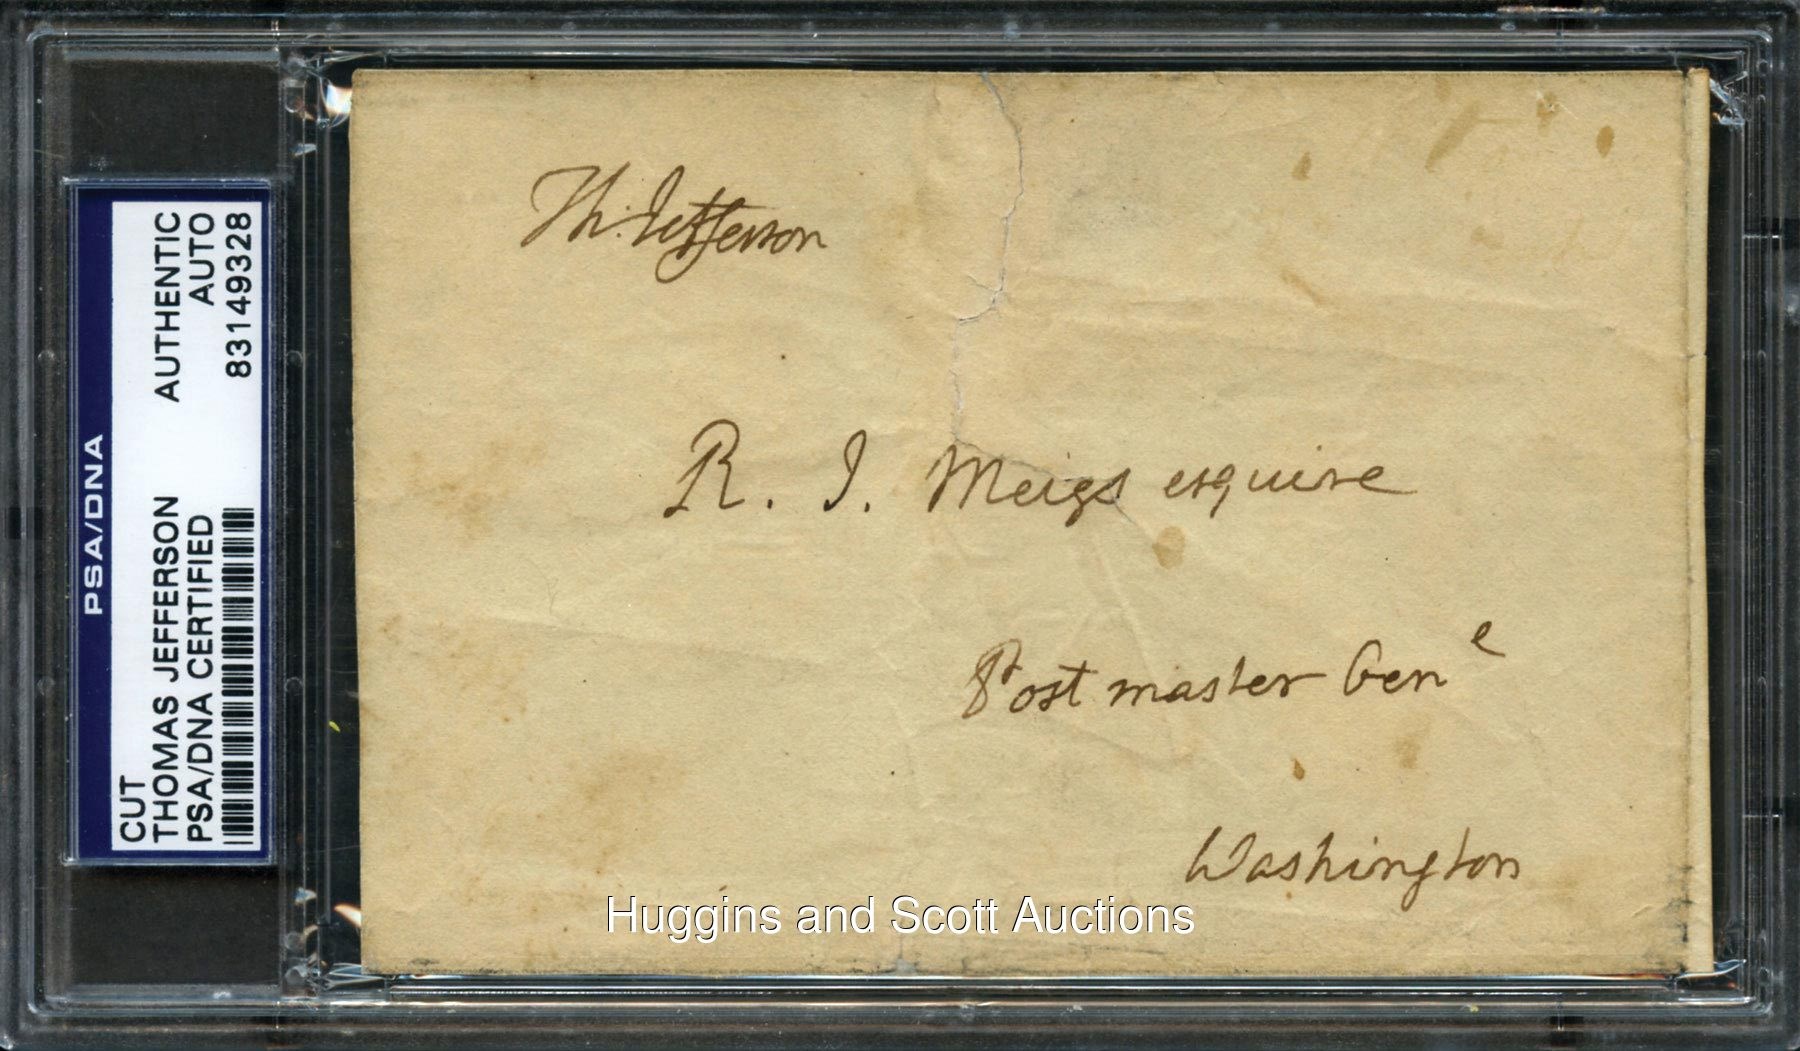 PSA/DNA
CUT
THOMAS JEFFERSON
PSA/DNA CERTIFIED
AUTHENTIC
AUTO
83149328
Th. Jefferson
R. J. Meigs esquire
Post master Genˡ
Washington
Huggins and Scott Auctions